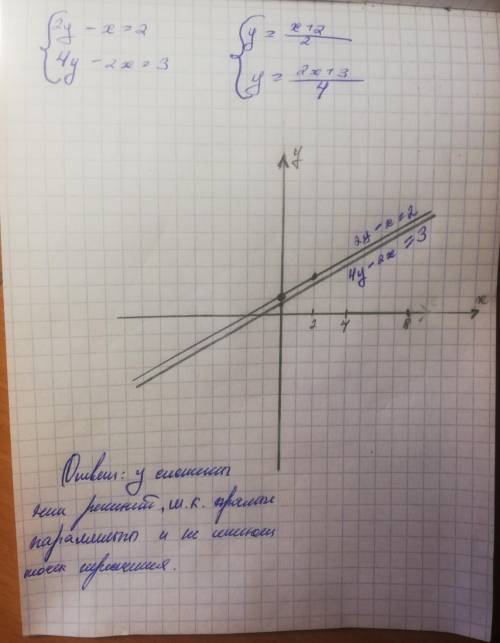 2y - x = 2
4y - 2x = 3
y = x+2/2
y = 2x+3/4
y
2y - x = 2
4y - 2x = 3
x
2 4 8
Ответ: у системы
нет решений, т.к. прямые
и не имеют
точек пересечения.